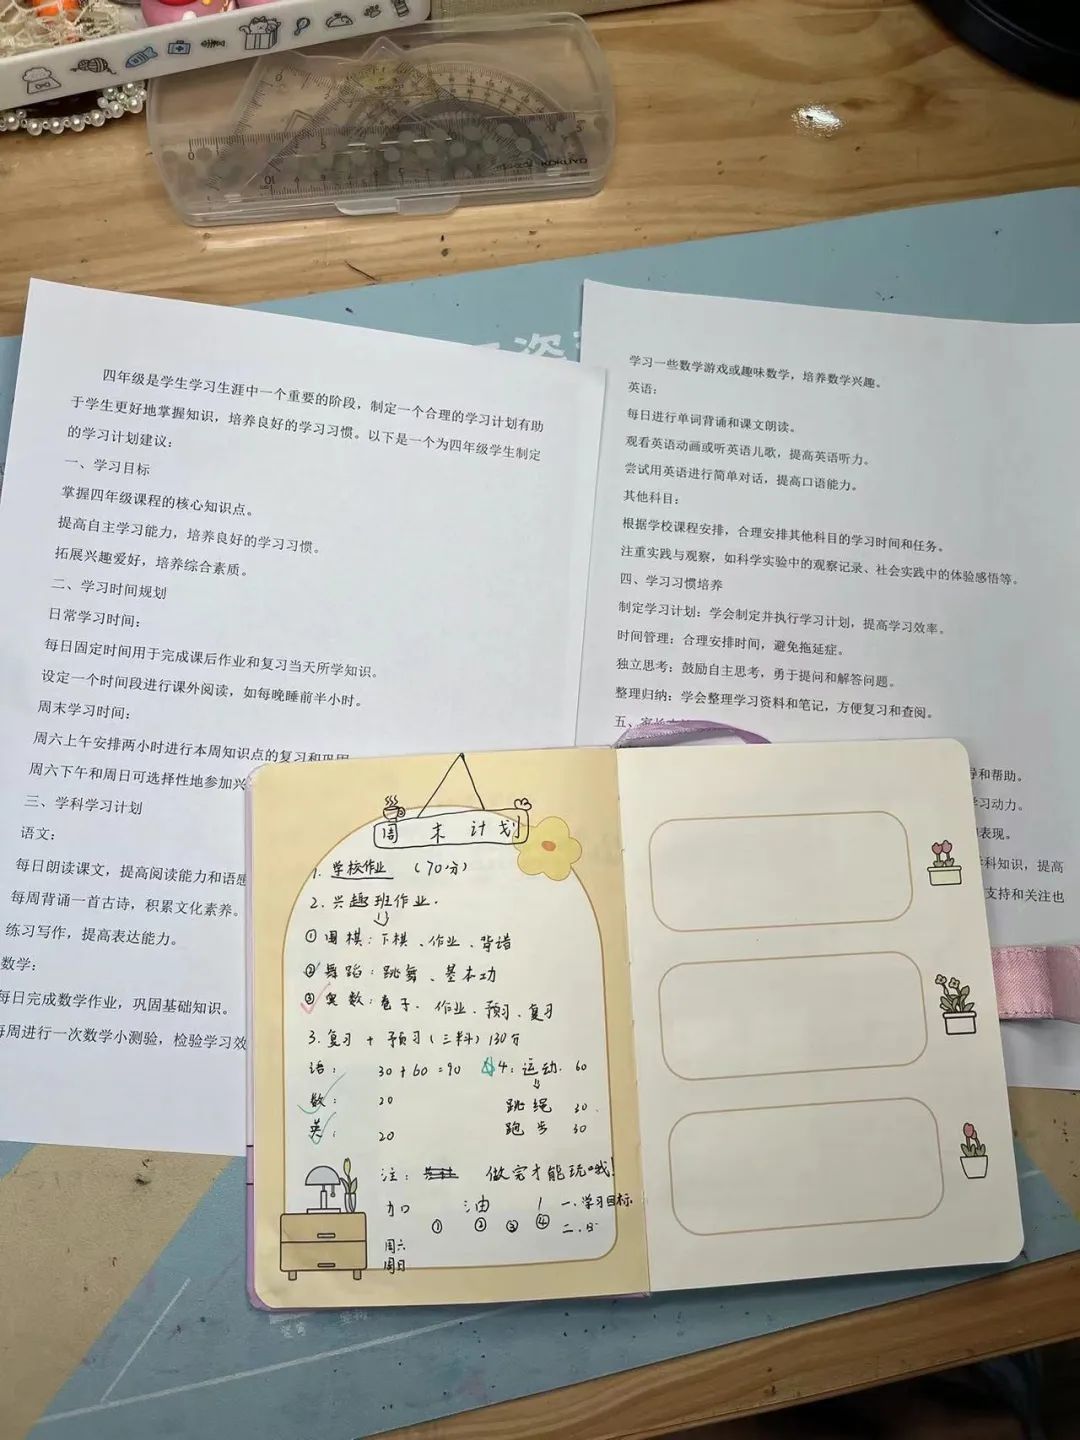 KOKUYO
四年级是学生学习生涯中一个重要的阶段，制定一个合理的学习计划有助
于学生更好地掌握知识，培养良好的学习习惯。以下是一个为四年级学生制定
的学习计划建议：
一、学习目标
掌握四年级课程的核心知识点。
提高自主学习能力，培养良好的学习习惯。
拓展兴趣爱好，培养综合素质。
二、学习时间规划
日常学习时间：
每日固定时间用于完成课后作业和复习当天所学知识。
设定一个时间段进行课外阅读，如每晚睡前半小时。
周末学习时间：
周六上午安排两小时进行本周知识点的复习和巩固
周六下午和周日可选择性地参加兴
三、学科学习计划
语文：
每日朗读课文，提高阅读能力和语感
每周背诵一首古诗，积累文化素养。
练习写作，提高表达能力。
数学：
每日完成数学作业，巩固基础知识。
每周进行一次数学小测验，检验学习效
学习一些数学游戏或趣味数学，培养数学兴趣。
英语：
每日进行单词背诵和课文朗读。
观看英语动画或听英语儿歌，提高英语听力。
尝试用英语进行简单对话，提高口语能力。
其他科目：
根据学校课程安排，合理安排其他科目的学习时间和任务。
注重实践与观察，如科学实验中的观察记录、社会实践中的体验感悟等。
四、学习习惯培养
制定学习计划：学会制定并执行学习计划，提高学习效率。
时间管理：合理安排时间，避免拖延症。
独立思考：鼓励自主思考，勇于提问和解答问题。
整理归纳：学会整理学习资料和笔记，方便复习和查阅。
五、家长
和帮助。
学习动力。
表现。
科知识，提高
支持和关注也
周末计划
1. 学校作业 （70分）
2. 兴趣班作业.
① 围棋：下棋、作业、背谱
② 舞蹈：跳舞、基本功
③ 奥数：卷子、作业、预习、复习
3. 复习 + 预习（三科）130分
语： 30+60=90 4：运动. 60
数： 20 跳绳 30
英： 20 跑步 30
注： 做完才能玩哦！
加油！ 一、学习目标.
① ② ③ ④ 二、日
周六
周日